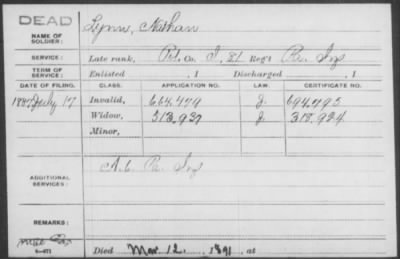 DEAD
NAME OF SOLDIER: Lynn, Nathan
SERVICE: Late rank, Pvt. Co. I, 81 Reg't Pa. Inf
TERM OF SERVICE: Enlisted , 1 Discharged , 1
DATE OF FILING. CLASS. APPLICATION NO. LAW. CERTIFICATE NO.
1887 July 17 Invalid, 664,479 J. 694,795
Widow, 513,937 J 318,924
Minor,
ADDITIONAL SERVICES: Pa. Inf
REMARKS:
6-871
Died Mar. 12, 1891, at